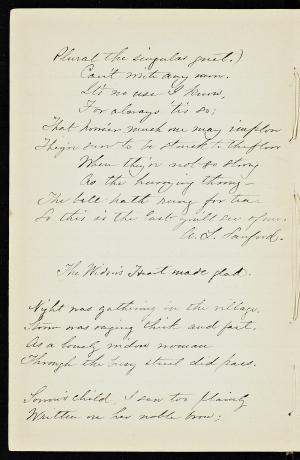 Plural the singular quet.)
Can't with any run.
It's no use I know,
For always 'tis so;
That however much one may implore
They're sure to be stuck to the floor
When they're not so strong
As the hurrying throng—
The bell hath rung for tea
So this is the last you'll see of me.
A. L. Sanford.
The Widow's Heart made glad.
Night was gathering in the village,
Snow was raging thick and fast,
As a lonely widow woman
Through the busy street did pass.
Sorrow's child, I seen too plainly
Written on her noble brow;